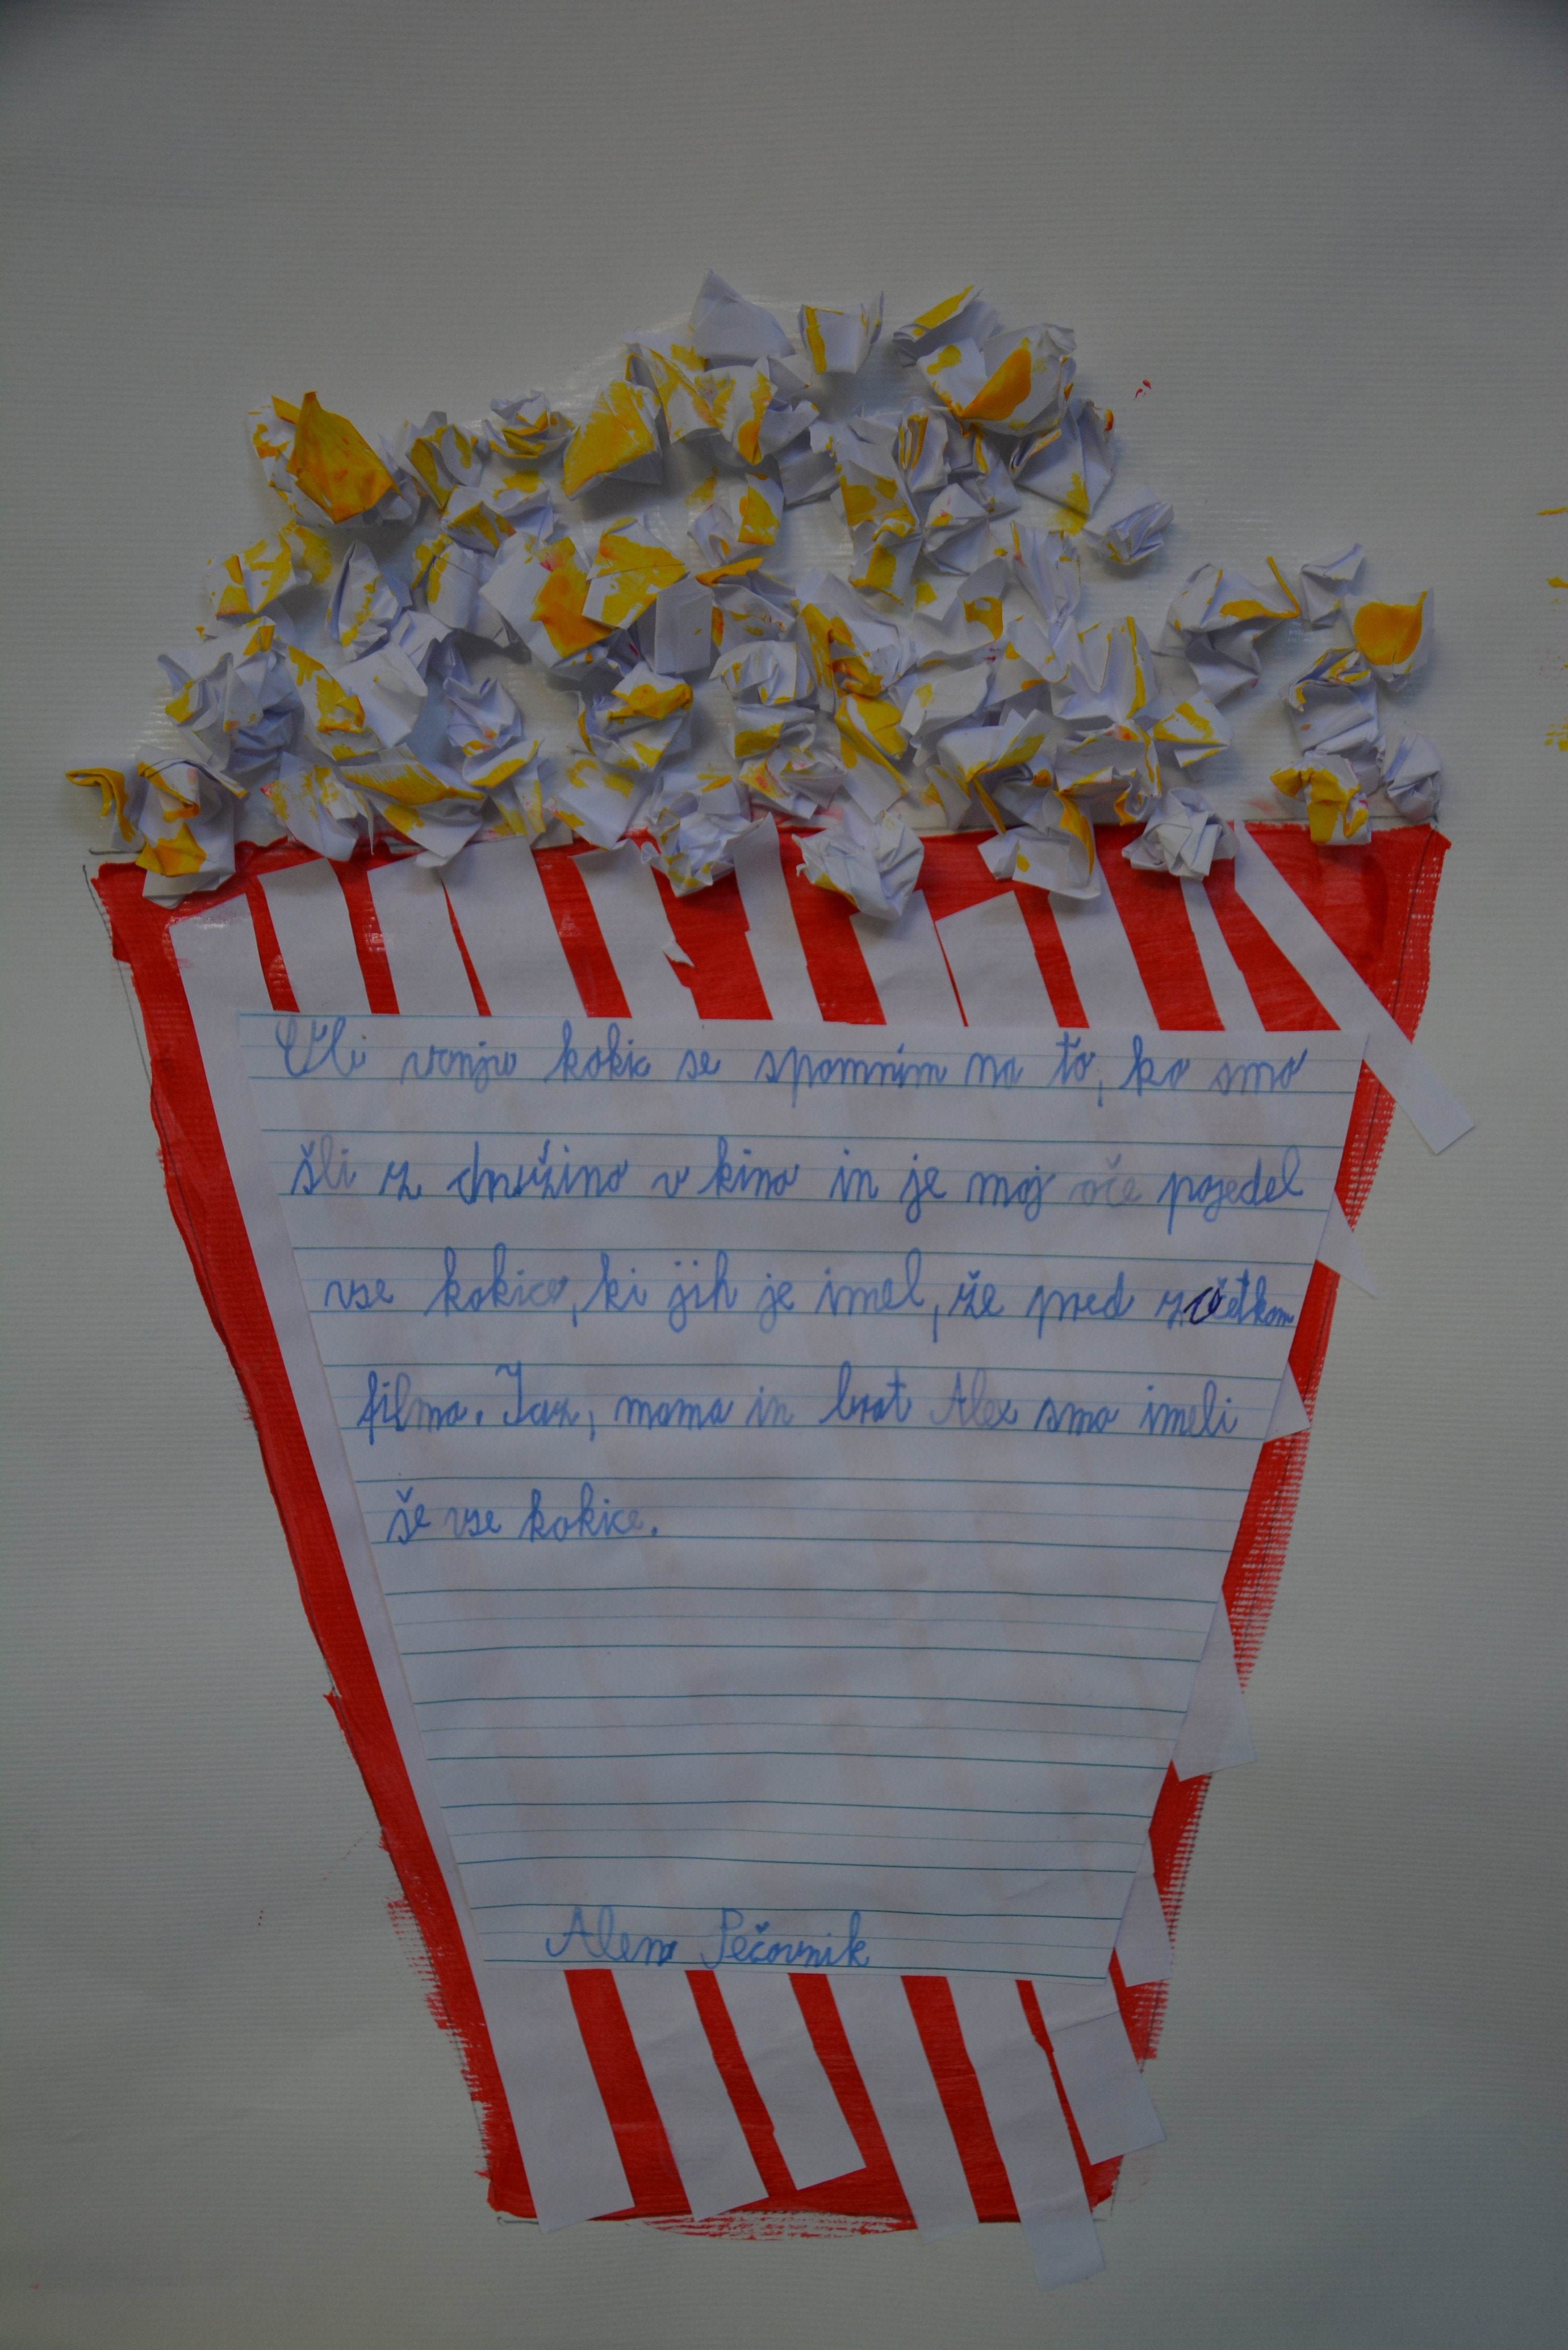 Ob vonju kokic se spomnim na to, ko smo
šli z družino v kino in je moj oče pojedel
vse kokice, ki jih je imel, že pred začetkom
filma. Jaz, mama in brat Alex smo imeli
še vse kokice.
Alen Pečovnik